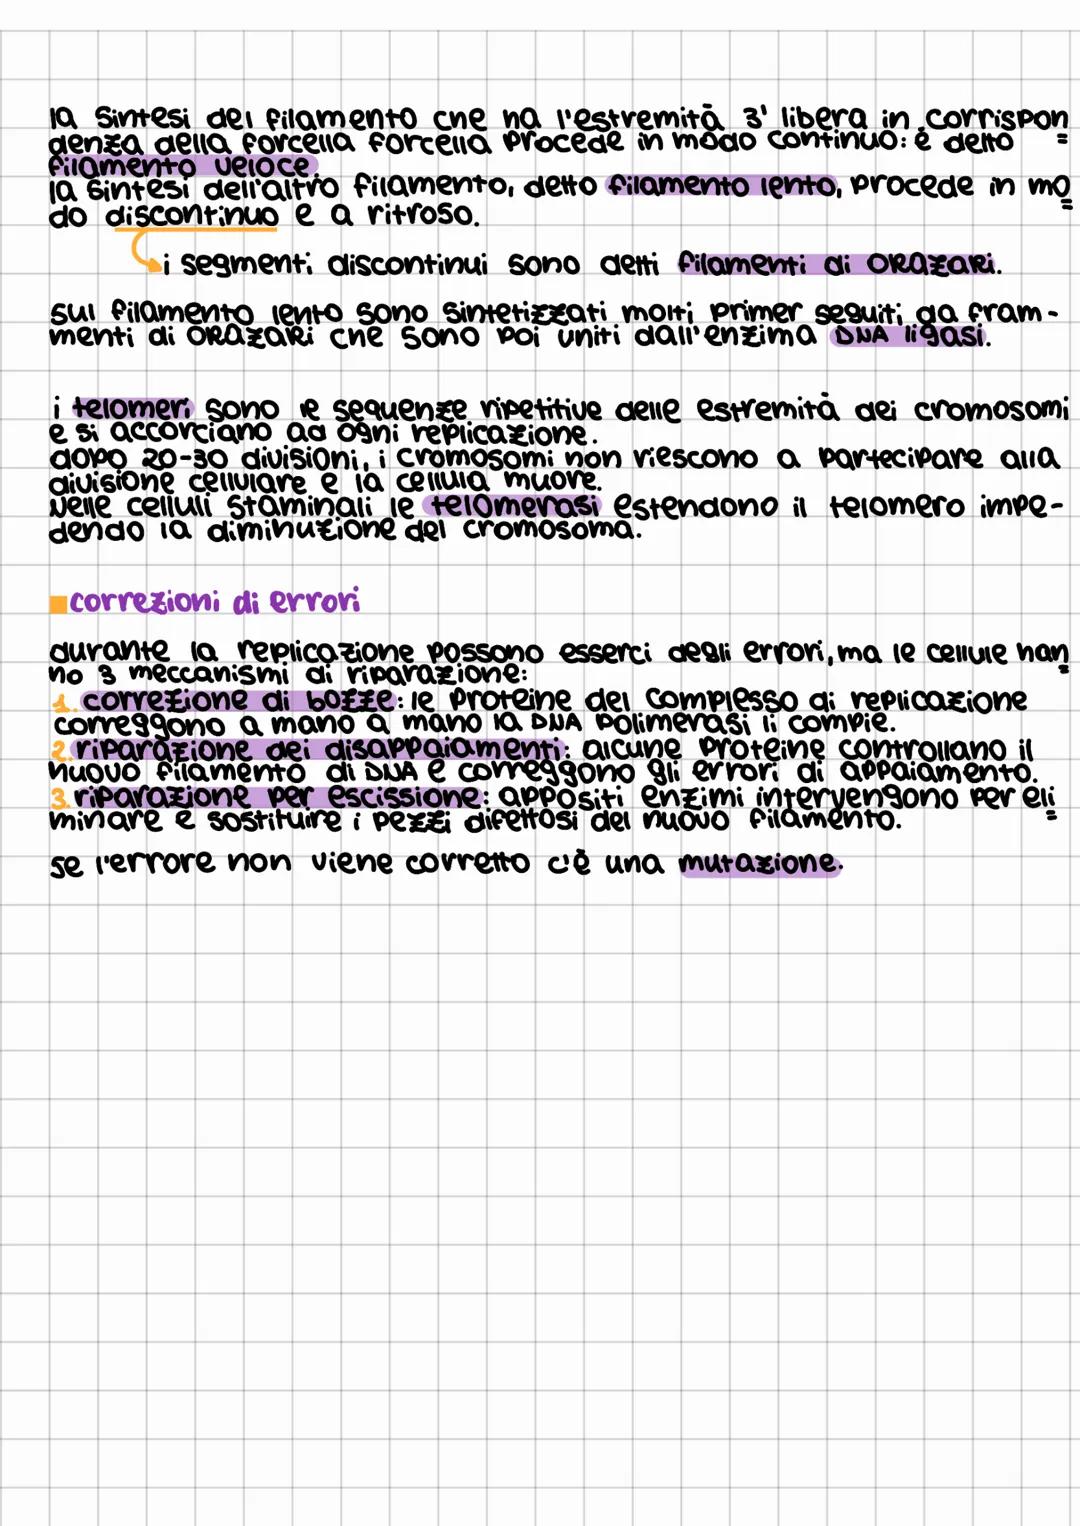 la sintesi del filamento che ha l'estremità 3' libera in corrispon
denza della forcella forcella procede in modo continuo: è detto
filamento veloce.
la sintesi dell'altro filamento, detto filamento lento, procede in mo
do discontinuo e a ritroso.
i segmenti discontinui sono detti filamenti di ORAZARI.
sul filamento lento sono sintetizzati molti primer seguiti da fram-
menti di ORAZARI che sono poi uniti dall'enzima DNA ligasi.
i telomeri sono le sequenze ripetitive delle estremità dei cromosomi
e si accorciano ad ogni replicazione.
dopo 20-30 divisioni, i cromosomi non riescono a partecipare alla
divisione cellulare e la cellula muore.
nelle celluli staminali le telomerasi estendono il telomero impe-
dendo la diminuzione del cromosoma.
correzioni di errori
durante la replicazione possono esserci degli errori, ma le cellule han
no 3 meccanismi di riparazione:
1. correzione di bozze: le proteine del complesso di replicazione
correggono a mano a mano la DNA polimerasi li compie.
2. riparazione dei disappaiamenti: alcune proteine controllano il
nuovo filamento di DNA e correggono gli errori di appaiamento.
3. riparazione per escissione: appositi enzimi intervengono per eli
minare e sostituire i pezzi difettosi del nuovo filamento.
se l'errore non viene corretto c'è una mutazione.